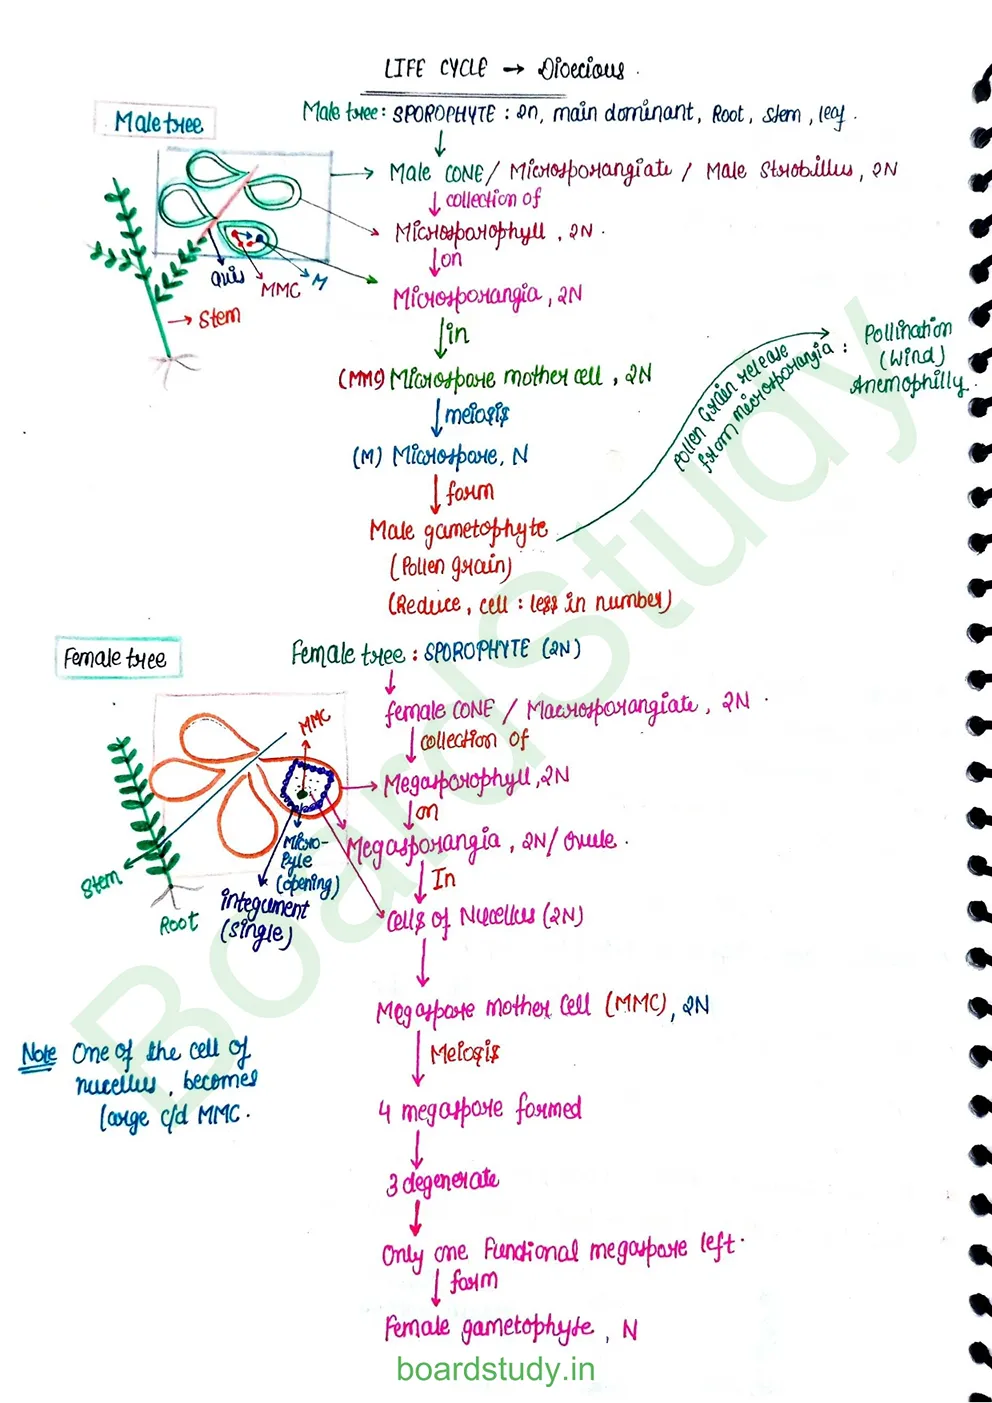 LIFE CYCLE → Dioecious.
Male tree
Male tree: SPOROPHYTE : 2n, main dominant, Root, stem, leaf.
Male CONE / Microsporangiate / Male Strobillus, 2N
collection of
Microsporophyll, 2N.
on
axis
MMC
M
Stem
Microsporangia, 2N
in
(MMC) Microspore mother cell, 2N
meiosis
(M) Microspore, N
form
Male gametophyte
(Pollen grain)
(Reduce, cell : less in number)
Pollen Grain release
from microsporangia :
Pollination
(Wind)
Anemophilly.
Female tree
Female tree : SPOROPHYTE (2N)
female CONE / Macrosporangiate, 2N.
collection of
MMC
Megasporophyll, 2N
on
Megasporangia, 2N/ Ovule.
Micro-
pyle
(opening)
Stem
Root
integument
(single)
In
Cells of Nucellus (2N)
Megaspore mother cell (MMC), 2N
Meiosis
Note One of the cell of
nucellus, becomes
large c/d MMC.
4 megaspore formed
3 degenerate
Only one Functional megaspore left.
form
Female gametophyte, N
boardstudy.in
BoardStudy